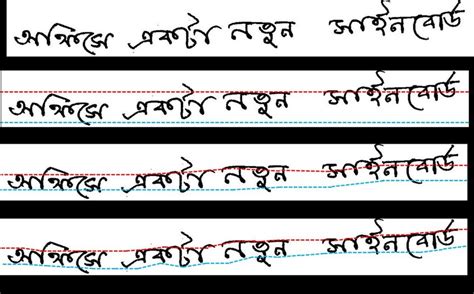 অফিসে একটা নতুন সাইনবোর্ড
অফিসে একটা নতুন সাইনবোর্ড
অফিসে একটা নতুন সাইনবোর্ড
অফিসে একটা নতুন সাইনবোর্ড